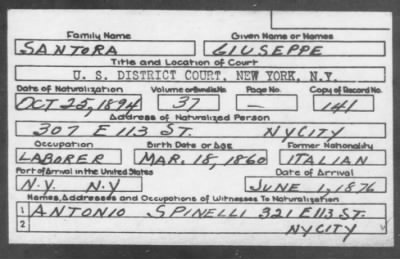 Family Name Given Name or Names
SANTORA GIUSEPPE
Title and Location of Court
U. S. DISTRICT COURT, NEW YORK, N.Y.
Date of Naturalization Volume or Bundle No. Page No. Copy of Record No.
OCT 25, 1894 37 — 141
Address of Naturalized Person
307 E 113 ST. NYCITY
Occupation Birth Date or Age Former Nationality
LABORER MAR. 18, 1860 ITALIAN
Port of Arrival in the United States Date of Arrival
N.Y. N.Y JUNE 1, 1876
Names, Addresses and Occupations of Witnesses To Naturalization
1 ANTONIO SPINELLI 321 E 113 ST.
2 NYCITY